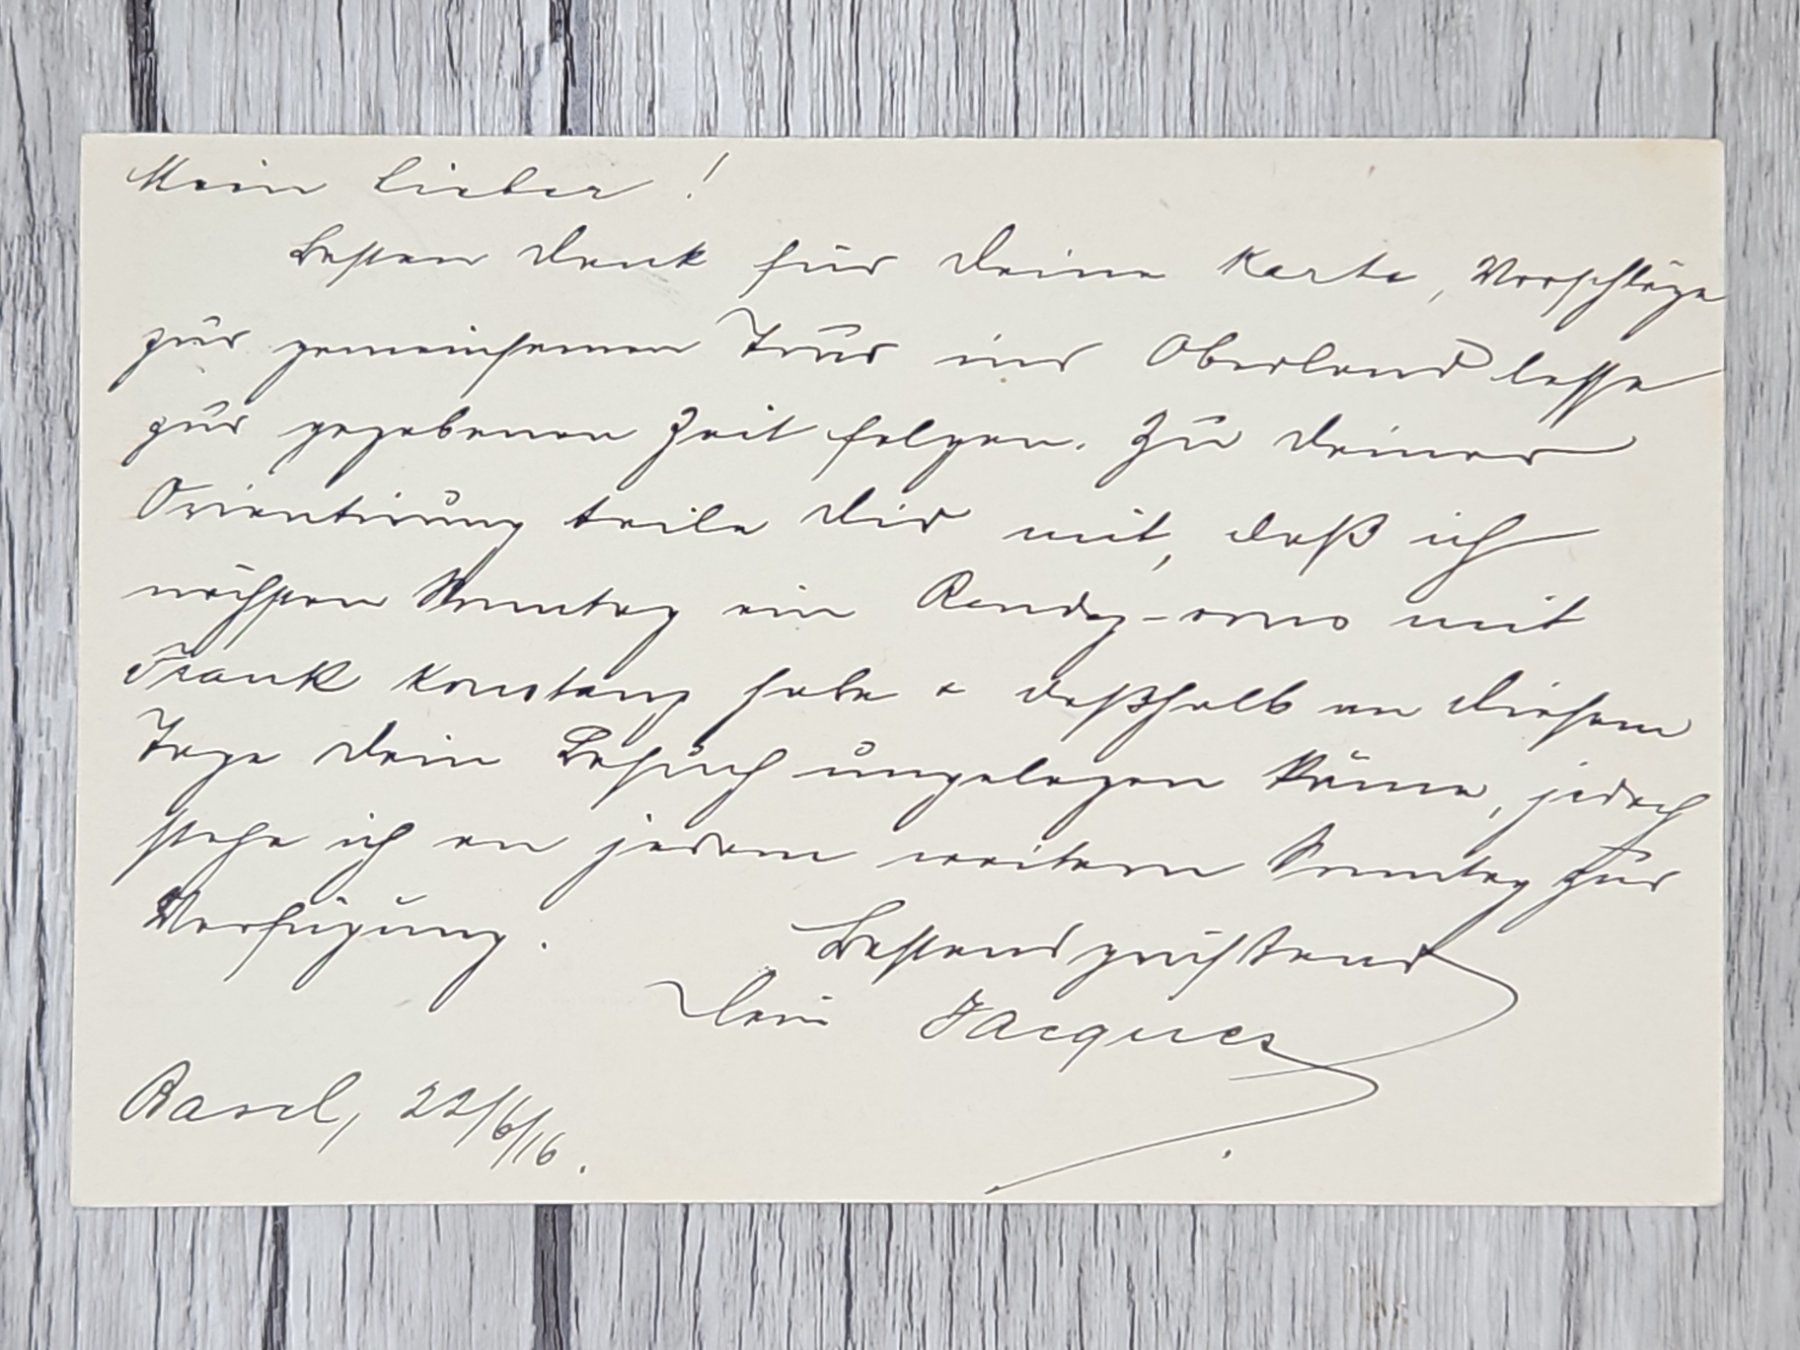 Mein Lieber!
Besten Dank für Deine Karte, Vorschläge
zur gemeinsamen Tour ins Oberland lasse
zur gegebenen Zeit folgen. Zu Deiner
Orientirung teile Dir mit, daß ich
nächsten Sonntag ein Rendez-vous mit
Frank Konstanz habe & deßhalb an diesem
Tage Dein Besuch ungelegen käme, jedoch
stehe ich an jedem weitern Sonntag zur
Verfügung.
Bestens grüßend
Dein Jacques
Basel, 22/6/16.